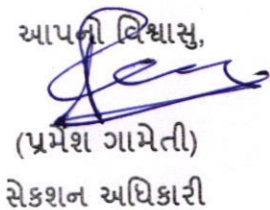 આપનો વિશ્વાસુ,
(પ્રમેશ ગામેતી)
સેકશન અધિકારી